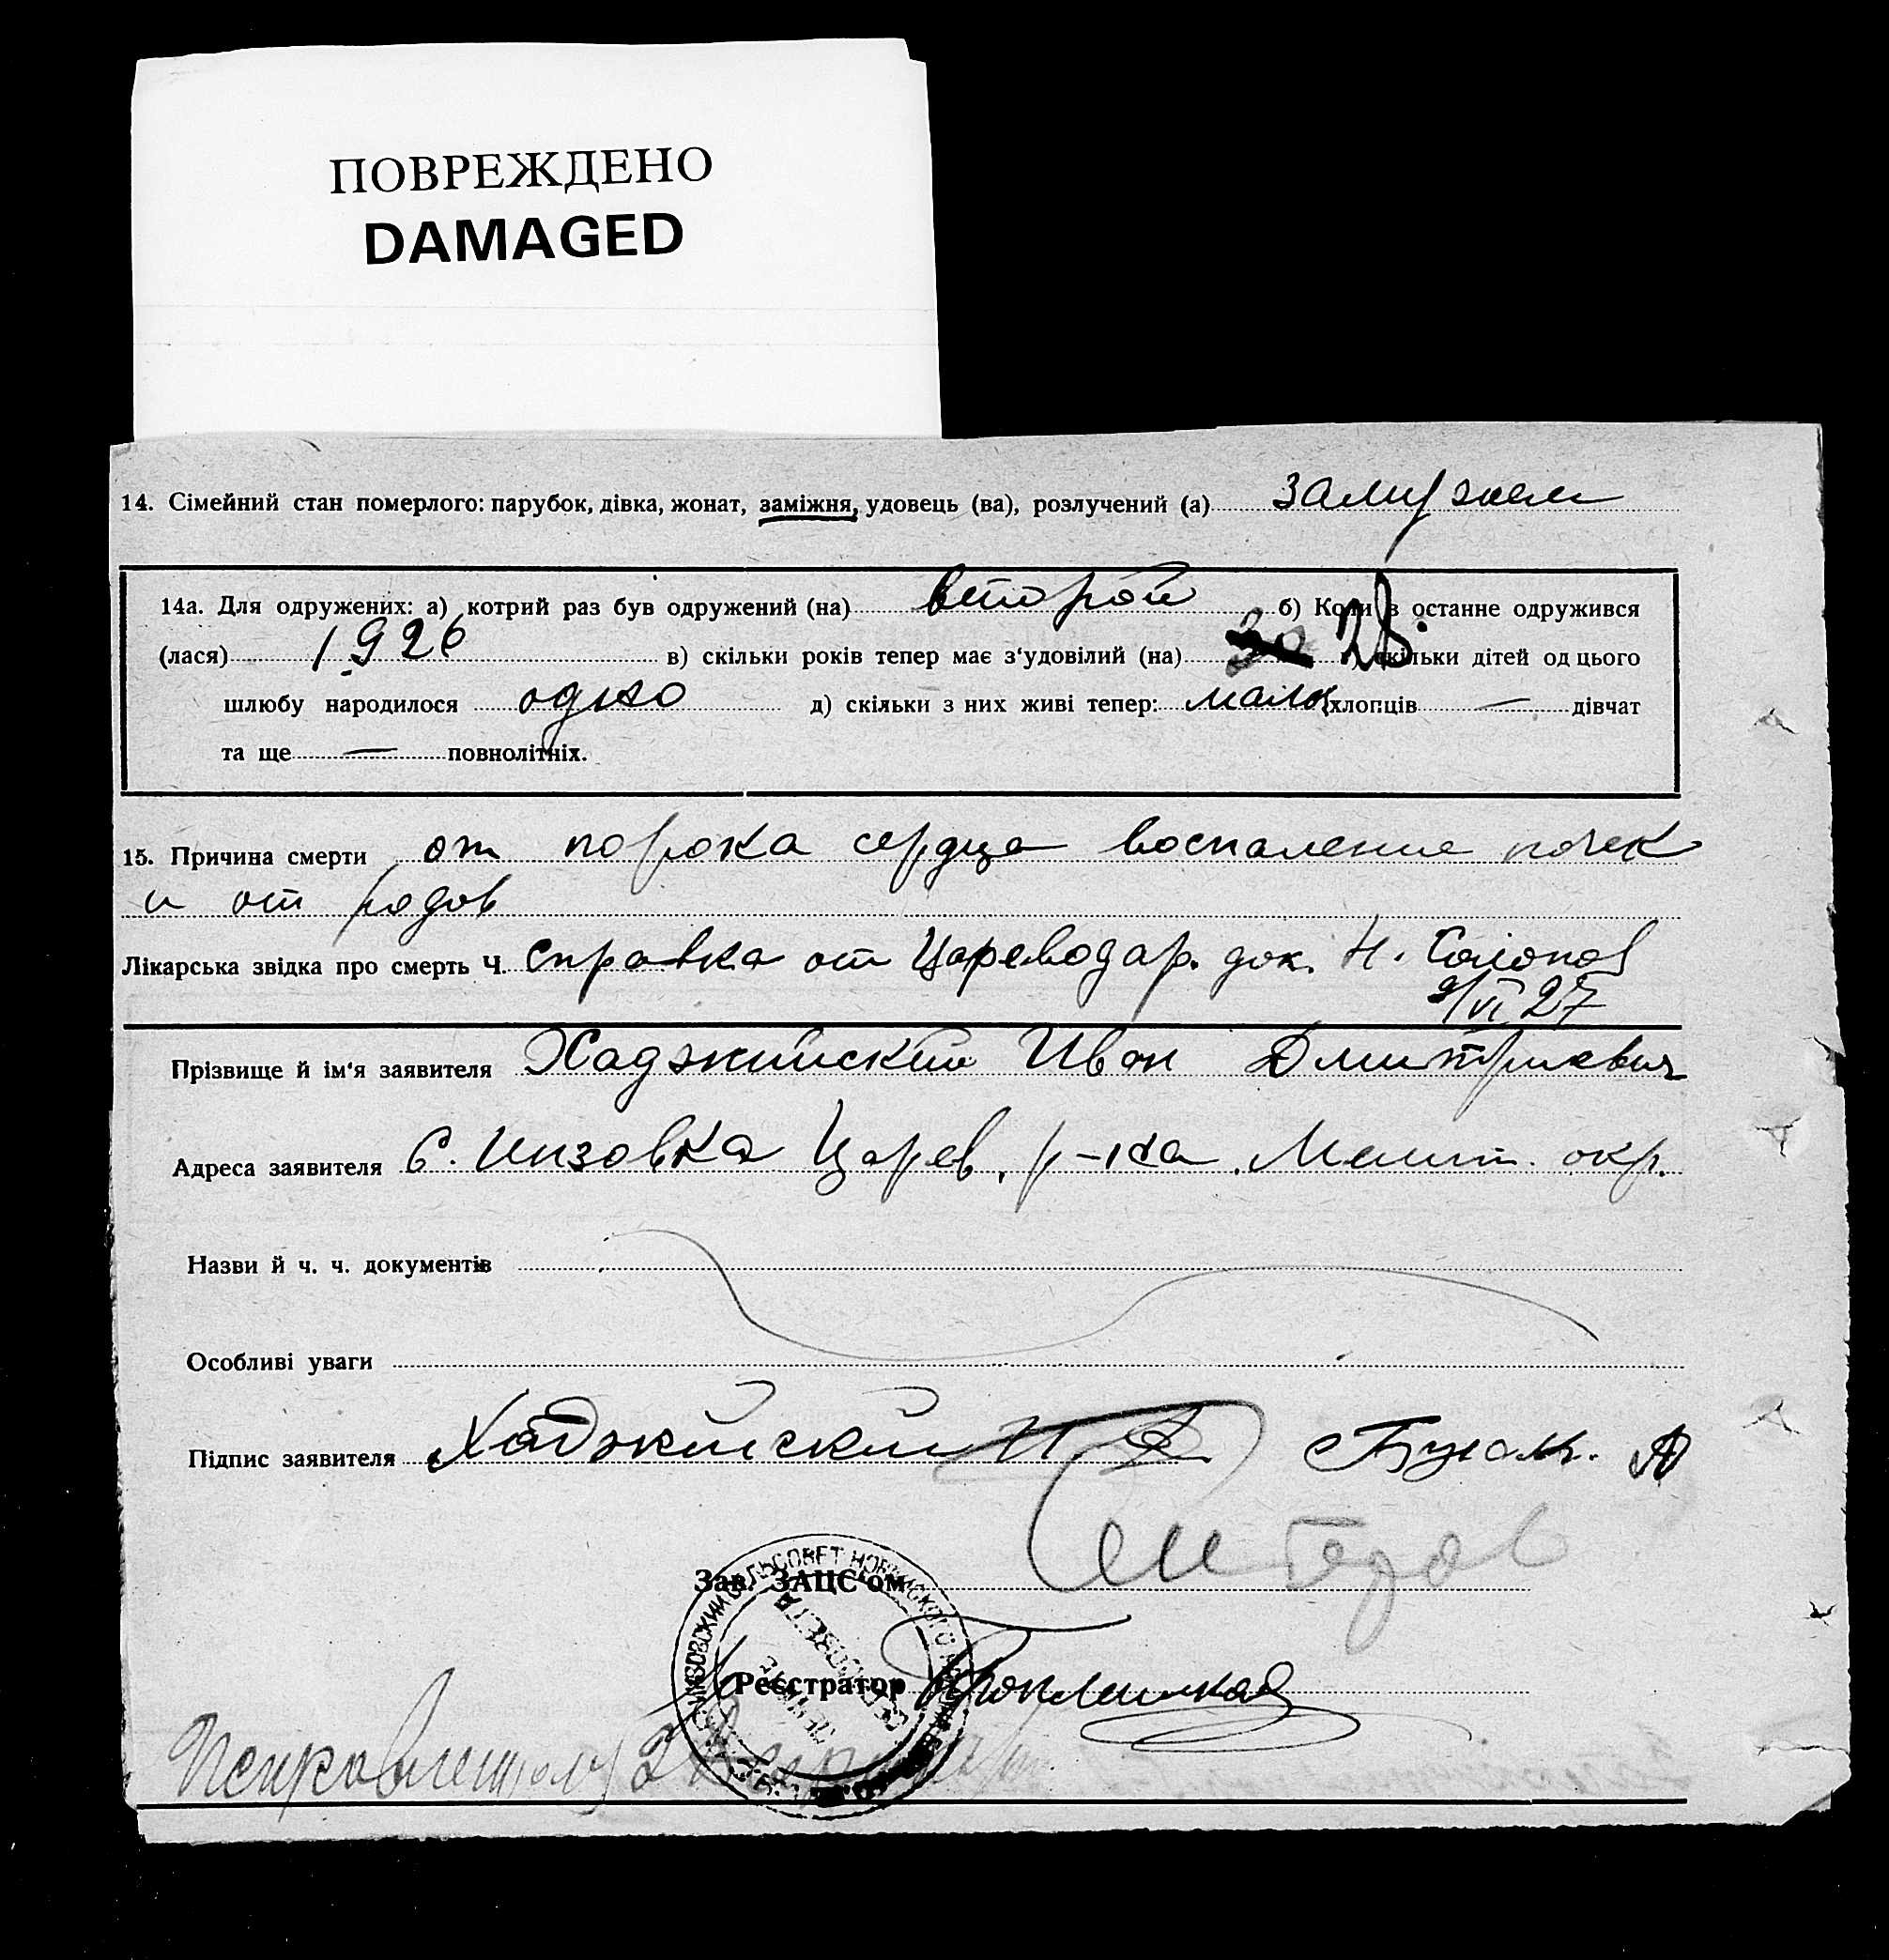 ПОВРЕЖДЕНО
DAMAGED
14. Сімейний стан померлого: парубок, дівка, жонат, заміжня, удовець (ва), розлучений (а) замужем
14а. Для одружених: а) котрий раз був одружений (на) второй б) Коли в останне одружився
(лася) 1926 в) скільки років тепер має з'удовілий (на) 30 28. скільки дітей од цього
шлюбу народилося одно д) скільки з них живі тепер: хлопців — дівчат
та ще — повнолітніх.
15. Причина смерти от порока сердца воспаление почек
и от родов
Лікарська звідка про смерть Ч. справка от Цареводар. док. Н.
9/VI 27
Прізвище й ім'я заявителя Хаджийский Иван Дмитриевич
Адреса заявителя С. Инзовка Царев. р-на. Мелит. окр.
Назви й ч. ч. документів
Особливі уваги
Підпис заявителя Хаджийский И Д
Зав. ЗАЦС'ом
Реєстратор
Исправленному